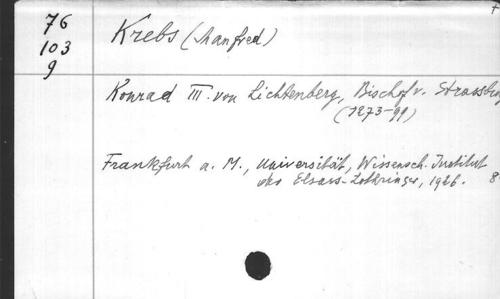 76
103
9
Krebs (Manfred)
Konrad III. von Lichtenberg, Bischof v.
(1273-99)
Frankfurt a. M., Universität, Wissensch. Institut
der Elsass-Lothringer, 1926. 8